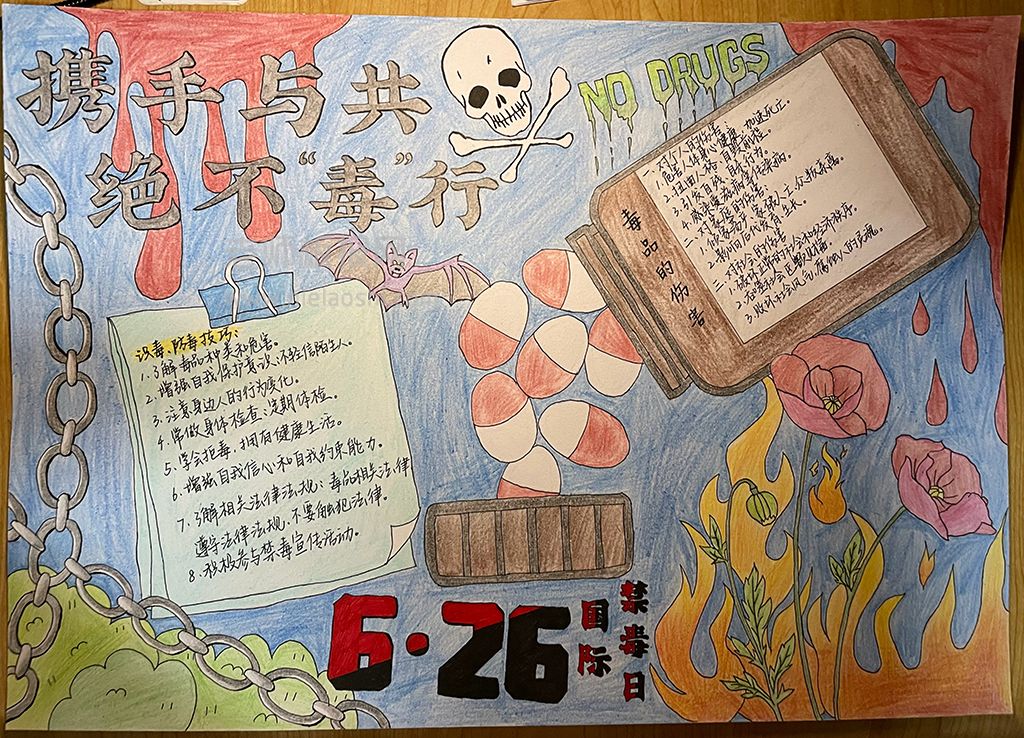 携手与共
绝不“毒”行
NO DRUGS
毒品的伤害
一、对个人的伤害:
1.危害人体身心健康,加速死亡。
2.扭曲人格,自毁前程。
3.引发自残、自杀行为。
4.感染
二、对家庭的伤害:
1.倾家荡产、家破人亡、众叛亲离。
2.影响后代发育、生长。
三、对社会的伤害
1.破坏正常的社会和经济秩序。
2.吞噬社会巨额财福。
3.败坏社会风气,腐蚀人的灵魂。
识毒、防毒技巧:
1.了解毒品种类和危害。
2.增强自我保护意识、不轻信陌生人。
3.注意身边人的行为变化。
4.常做身体检查、定期体检。
5.学会拒毒,拥有健康生活。
6.增强自我信心和自我约束能力。
7.了解相关法律法规、毒品相关法律
遵守法律法规、不要触犯法律。
8.积极参与禁毒宣传活动。
6·26
国际
禁毒日